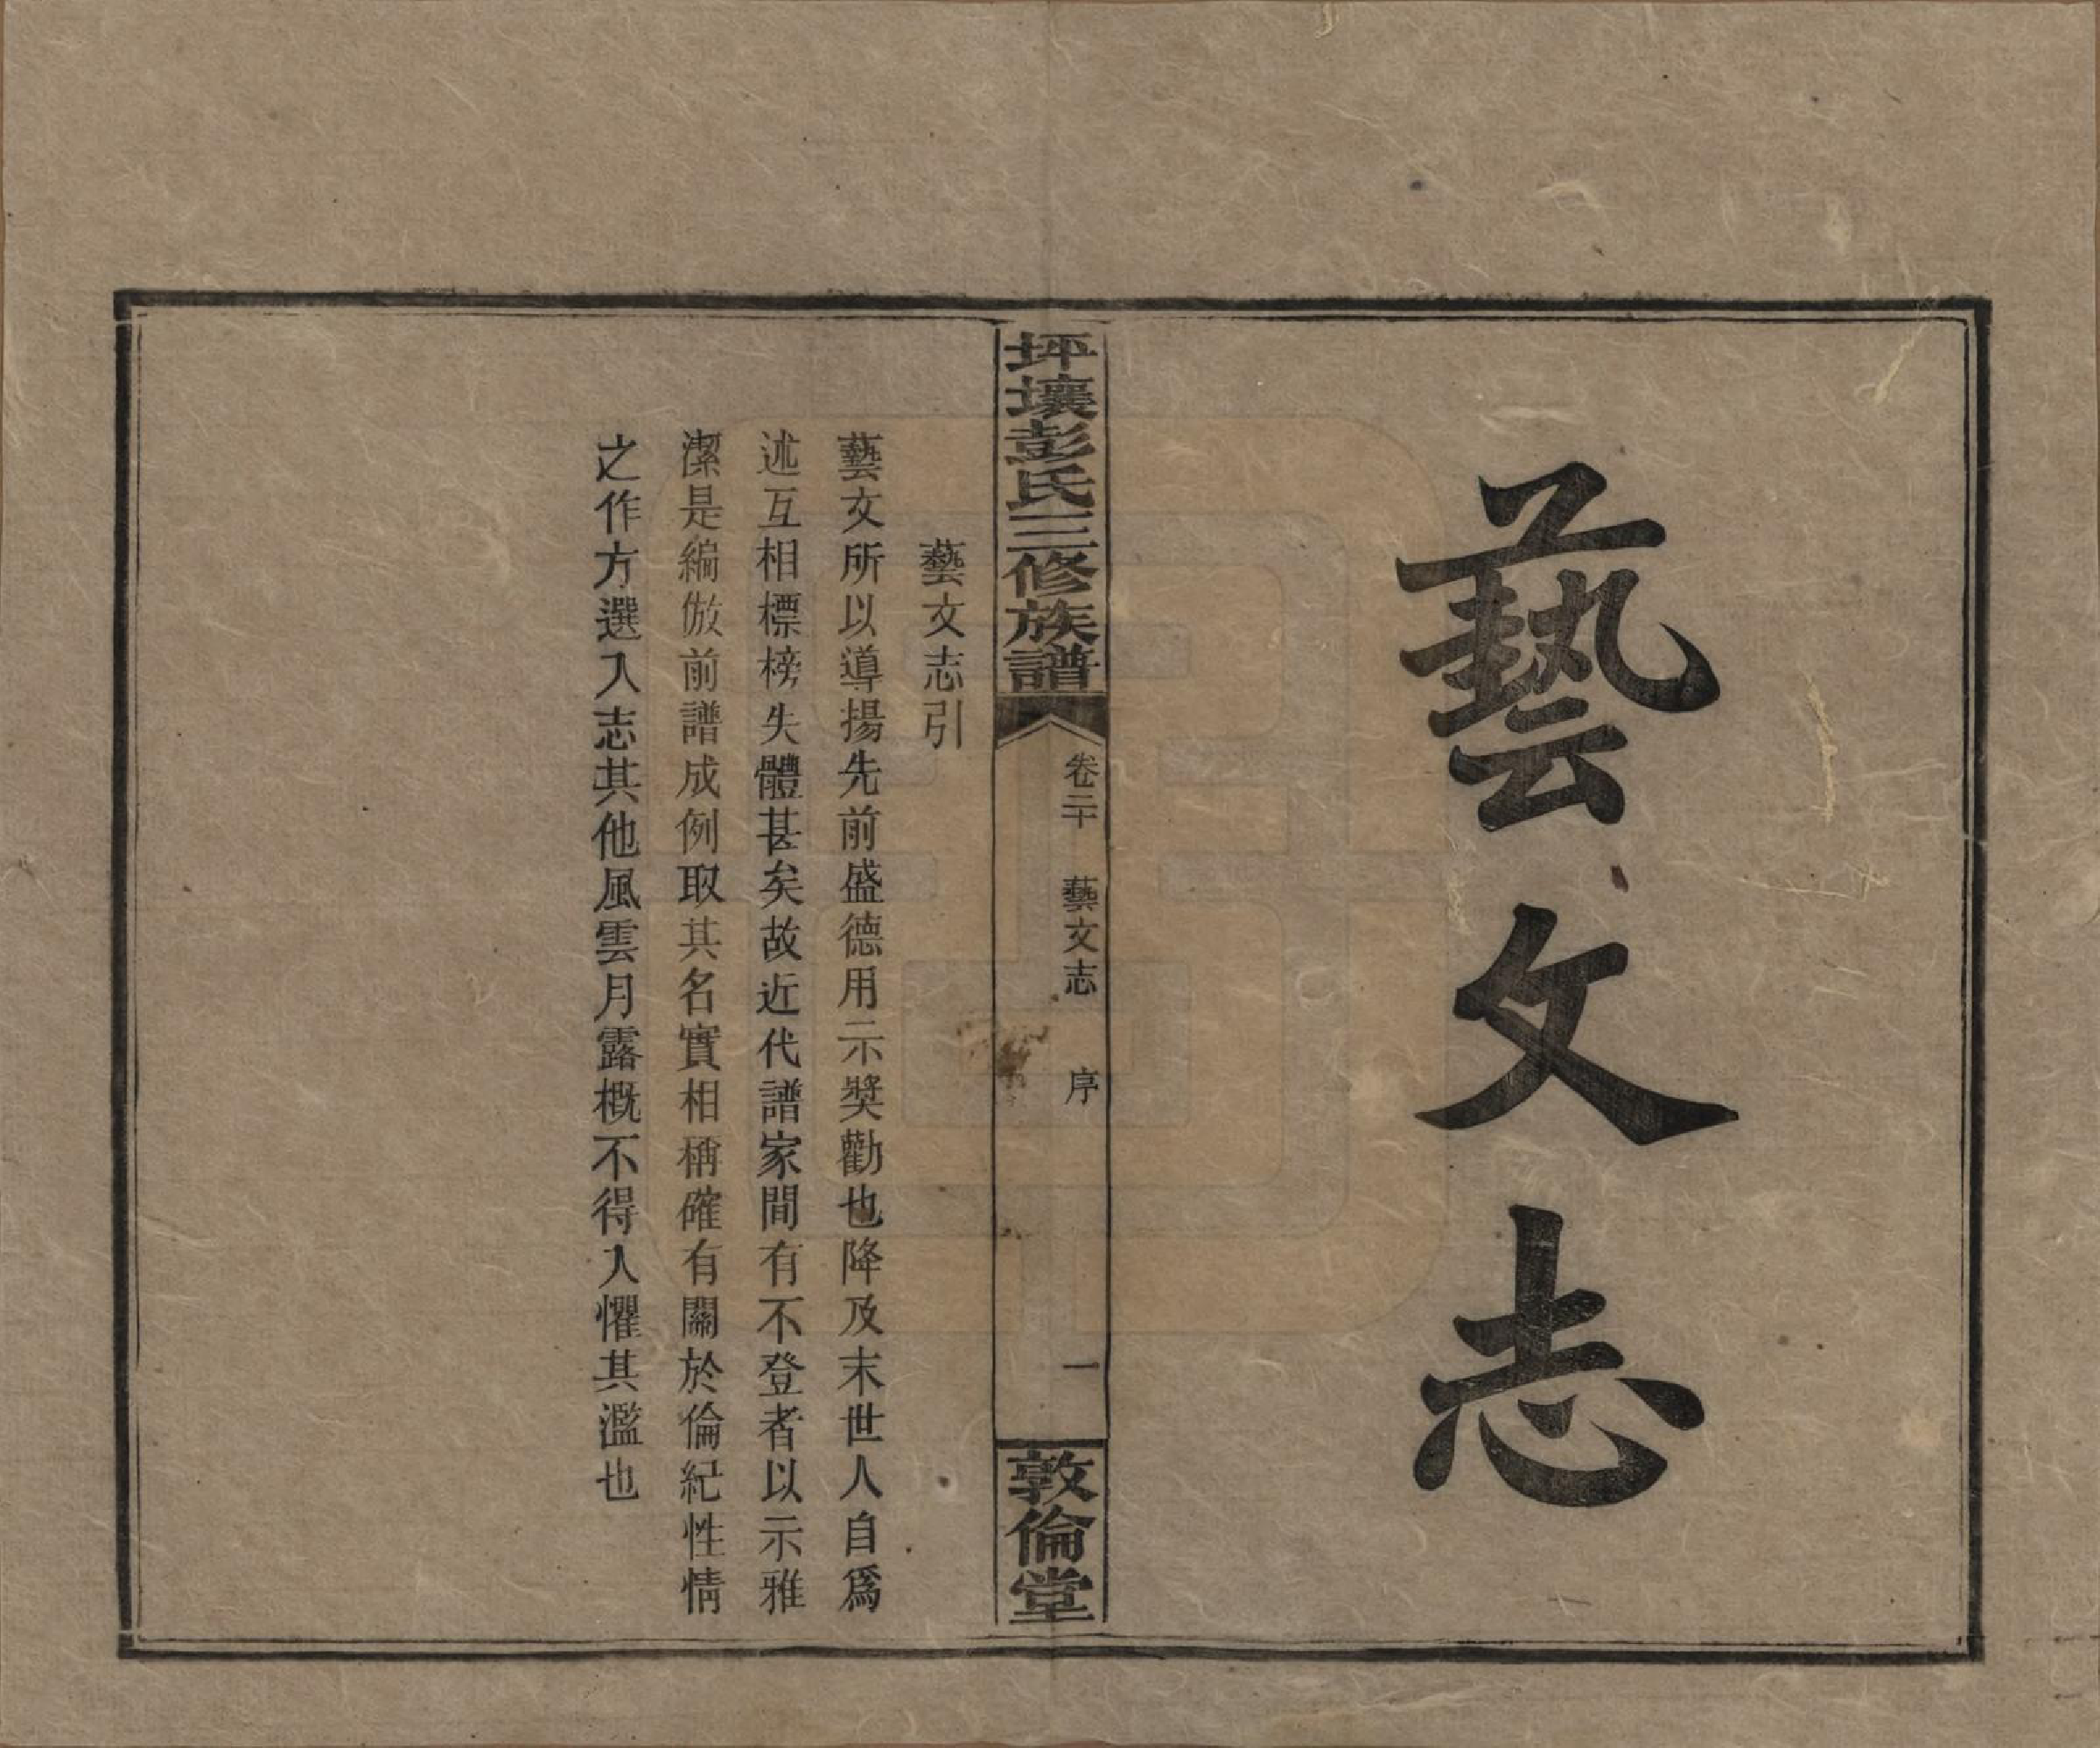 藝文志
坪壤彭氏三修族譜
卷二十 藝文志 序 一
敦倫堂
藝文志引
藝文所以導揚先前盛德用示獎勸也降及末世人自爲
述互相標榜失體甚矣故近代譜家間有不登者以示雅
潔是編倣前譜成例取其名實相稱確有關於倫紀性情
之作方選入志其他風雲月露概不得入懼其濫也